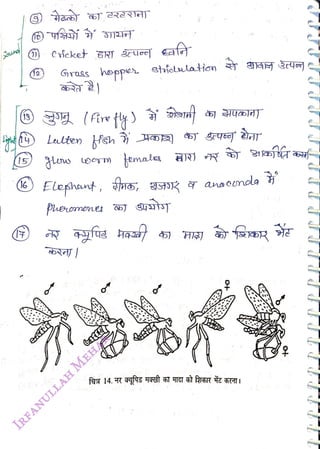 ⑨ मेंढकों का टरटराना
⑩ पक्षियों में गायन
Sound
⑪ Cricket द्वारा उत्पन्न ध्वनि
⑫ Grass hopper stridulation से आवाज उत्पन्न
करते है।
⑬ जुगनू (Firefly) में रोशनी का चमकाना
light
⑭ Lalten fish में प्रकाश का उत्पन्न होना
⑮ glow worm females द्वारा नर को आकर्षित करना
⑯ Elephant, दीमक, अजगर व anaconda में
pheromones का उपयोग
⑰ नर क्यूपिड मक्खी का मादा को शिकार भेंट
करना।
♂ ♂ ♂ ♀ ♂ ♀
चित्र 14. नर क्यूपिड मक्खी का मादा को शिकार भेंट करना।
IRFANULLAH